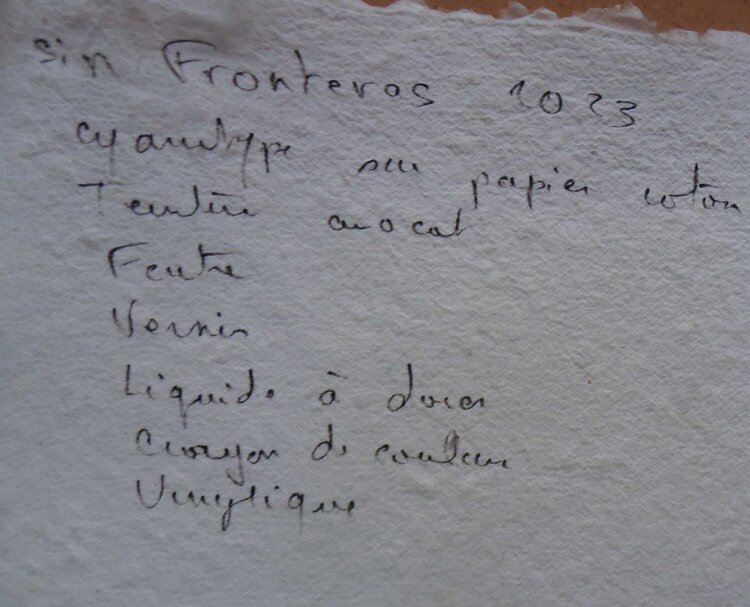 Sin Fronteras 2023
Cyanotype sur papier coton
Teinture avocat
Feutre
Vernis
Liquide à dorer
Crayon de couleur
Vinylique